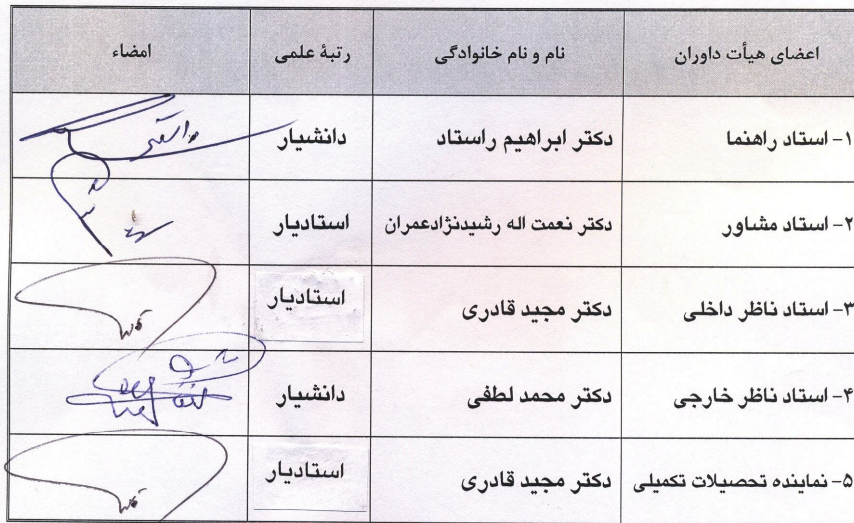 اعضای هیأت داوران نام و نام خانوادگی رتبهٔ علمی امضاء
۱- استاد راهنما دکتر ابراهیم راستاد دانشیار
۲- استاد مشاور دکتر نعمت اله رشیدنژادعمران استادیار
۳- استاد ناظر داخلی دکتر مجید قادری استادیار
۴- استاد ناظر خارجی دکتر محمد لطفی دانشیار
۵- نماینده تحصیلات تکمیلی دکتر مجید قادری استادیار